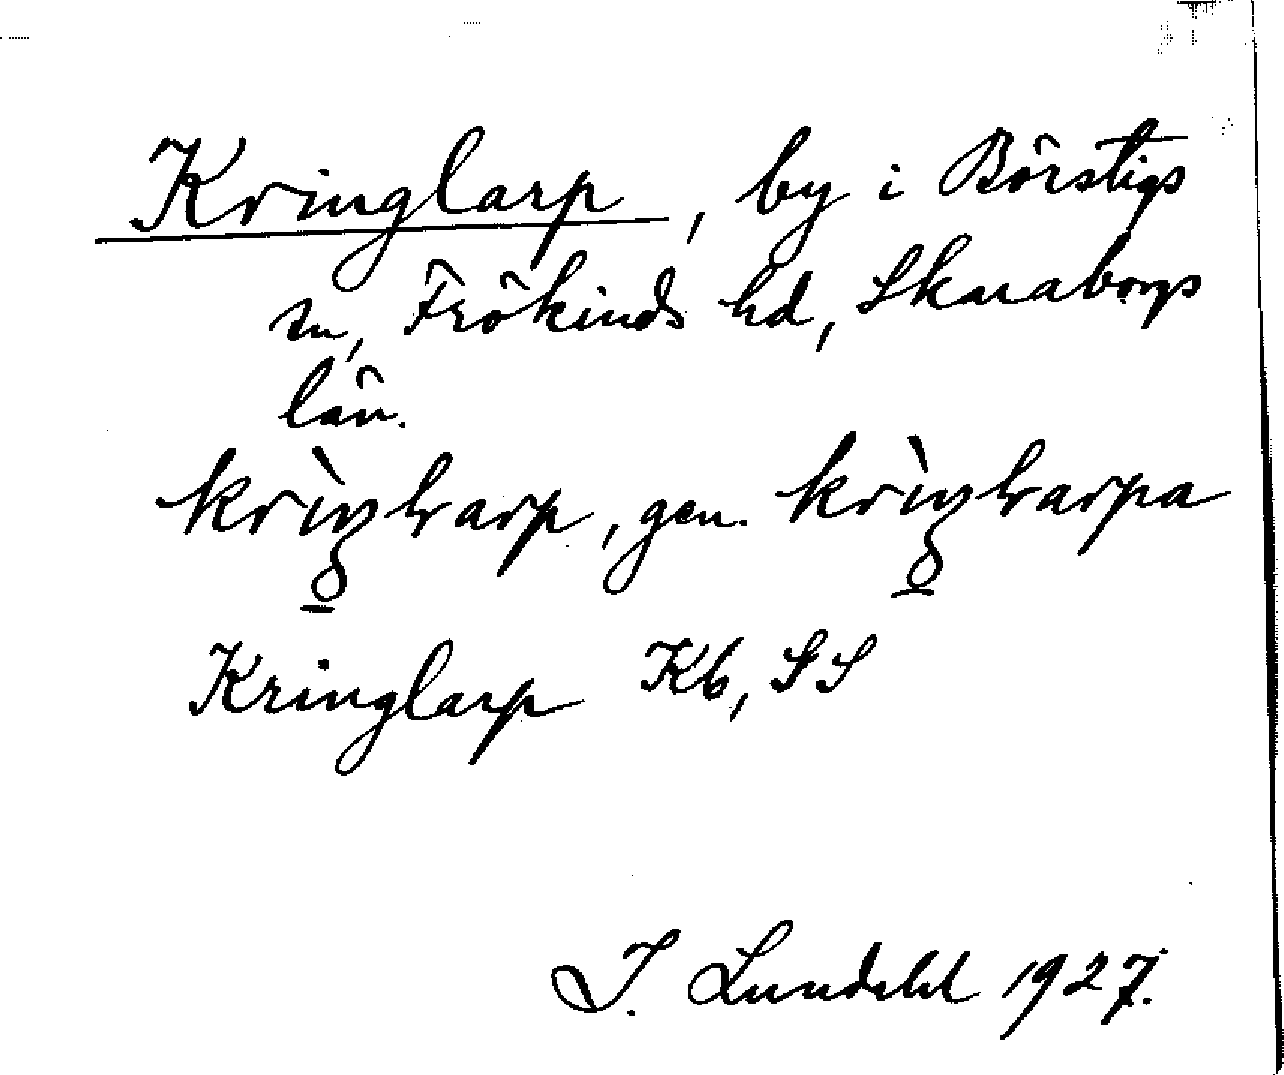 Kringlarp, by i Börstigs
sn, Frökinds hd, Skaraborgs
län.
krìŋlarp, gen. krìŋlarpa
Kringlarp Kb, SS
I. Lundahl 1927.